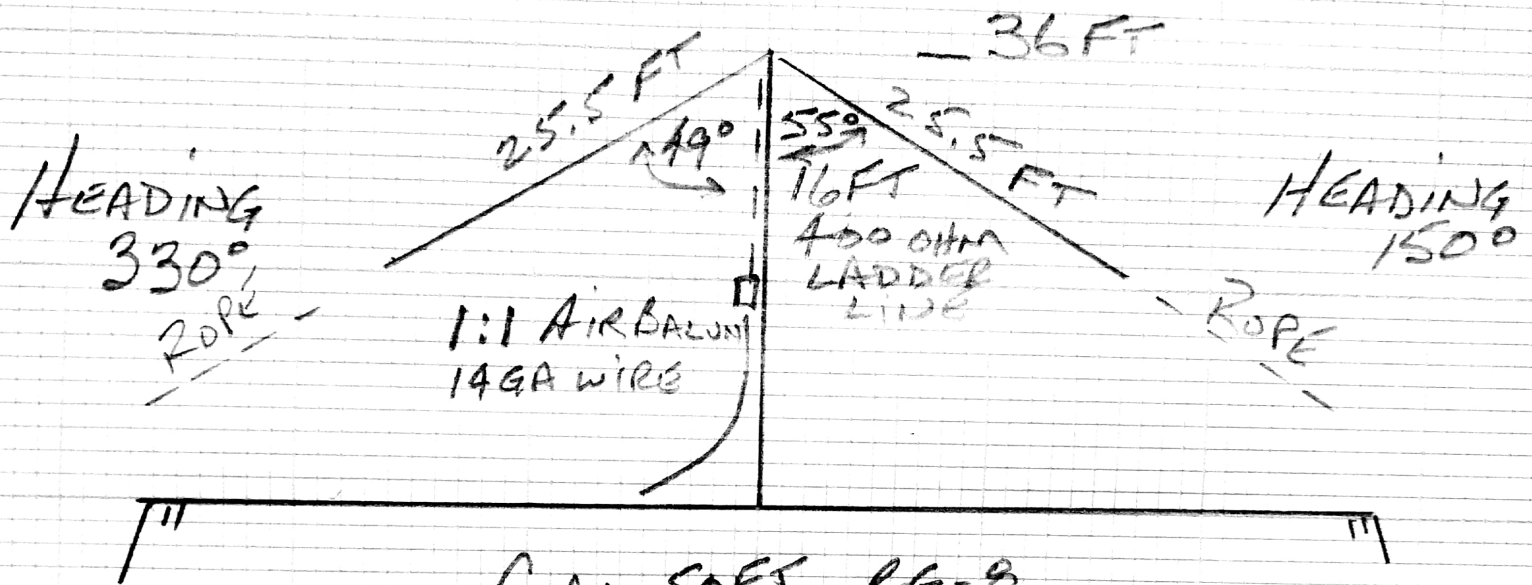 — 36 FT
25.5 FT
49°
55°
25.5 FT
16 FT
400 OHM
LADDER
LINE
HEADING
330°
ROPE
HEADING
150°
ROPE
1:1 AIR BALUN
14GA WIRE
50FT RG-8